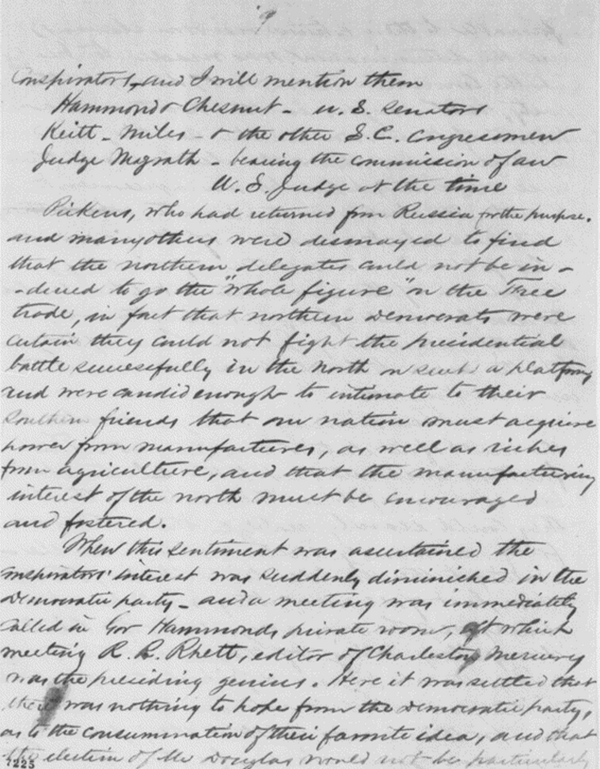 9
Conspirators, and I will mention them
Hammond & Chesnut - U. S. Senators
Keitt - Miles - & the other S.C. Congressmen
Judge Magrath - bearing the commission of our
U. S. Judge at the time
Pickens, who had returned from Russia for the purpose.
and many others were dismayed to find
that the northern delegates could not be in-
-duced to "go the "whole figure" on the Free
trade, in fact that northern Democrats were
certain they could not fight the presidential
battle successfully in the North on such a platform
and were candid enough to intimate to their
Southern friends that our nation must acquire
power from manufactures, as well as riches
from agriculture, and that the manufacturing
interest of the north must be encouraged
and fostered.
When this sentiment was ascertained the
conspirators' interest was suddenly diminished in the
Democratic party - and a meeting was immediately
called in Gov Hammonds private room, at which
meeting R. B. Rhett, editor of Charleston Mercury
was the presiding genius. Here it was settled that
there was nothing to hope from the Democratic party,
as to the consummation of their favorite idea, and that
the election of Mr Douglas would not be particularly
1225